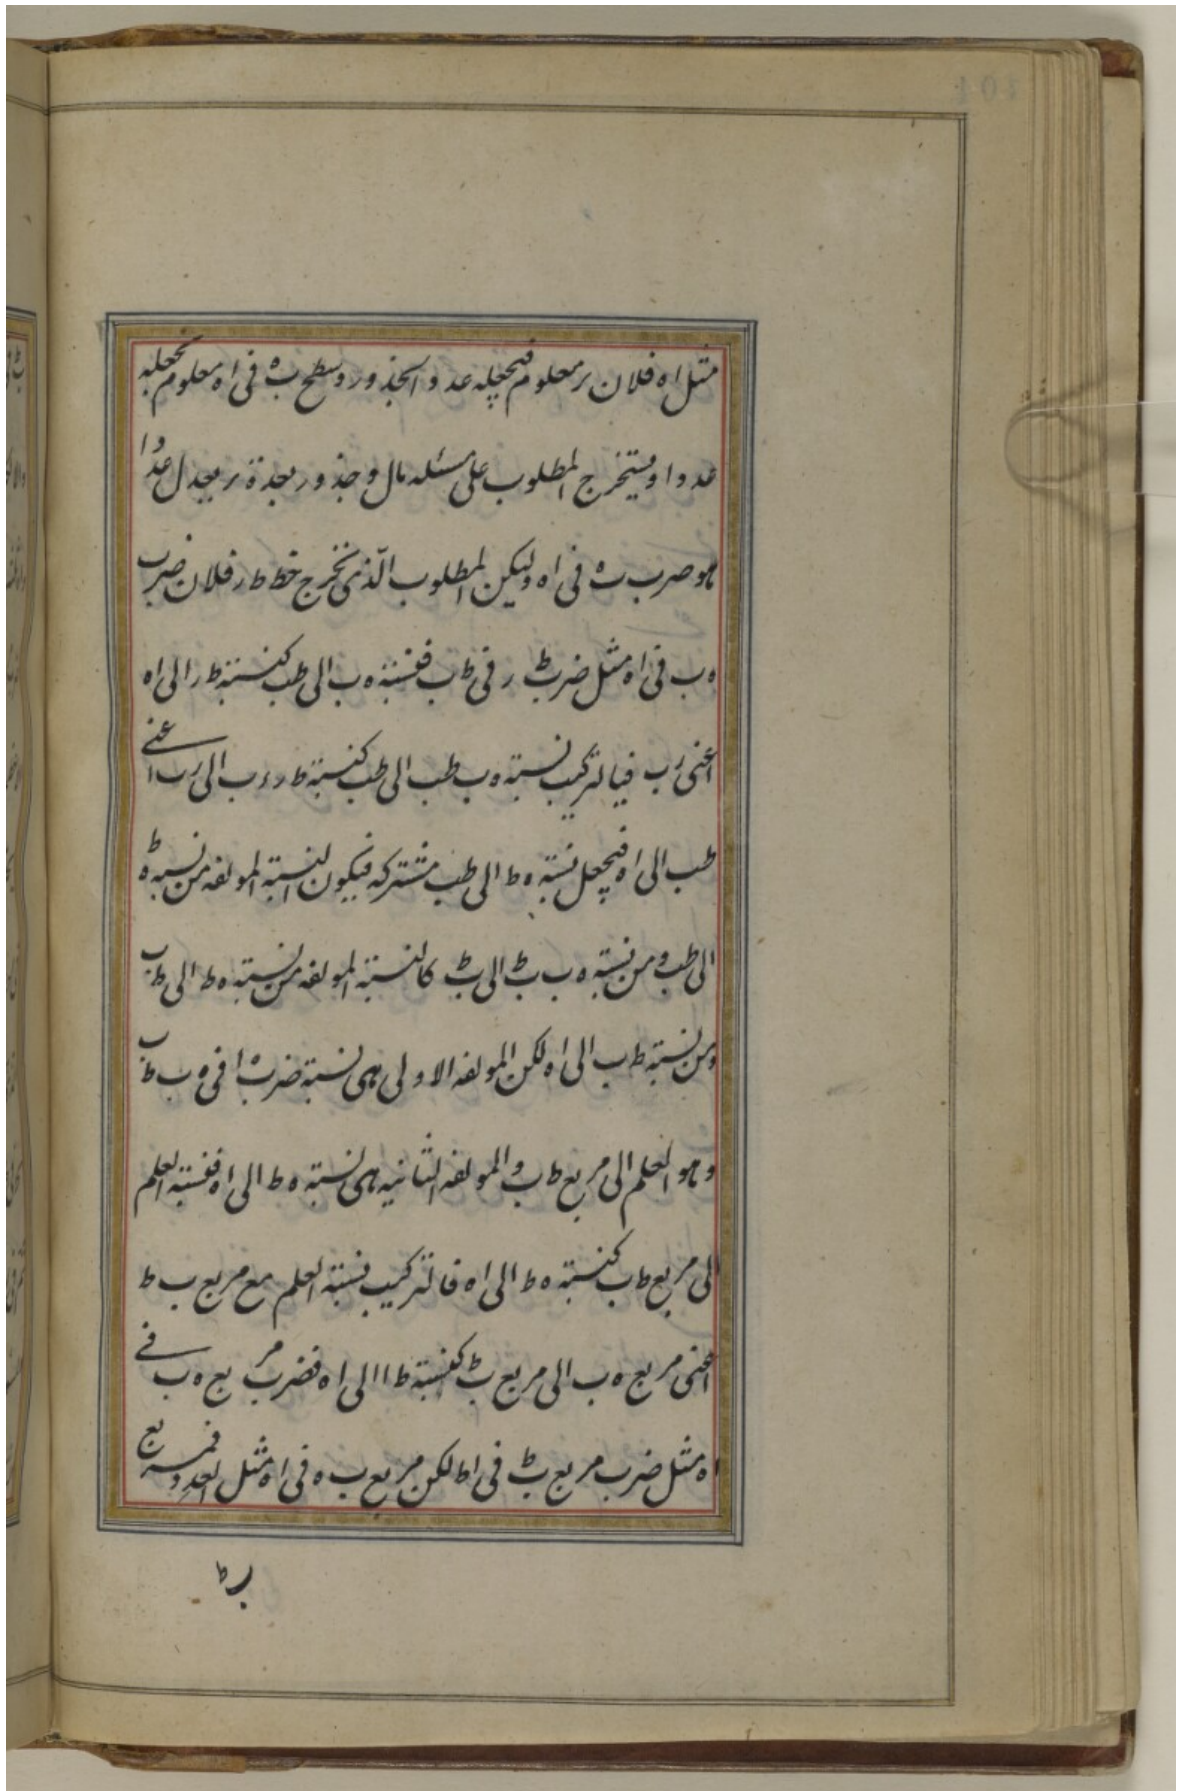 مثل اه فلان ٮر معلوم فنجعله عدد الجذور وسطح ب ه فى اه معلوم نجعله
عددا ويستخرج المطلوب على مسئله مال وجذور بعدة ٮر يعدل عددا
ماهو ضرب ب ه فى اه وليكن المطلوب الّذى نخرج خط ط ر فلان ضرب
ه ب فى اه مثل ضرب ط ر فى ط ب فنسبة ه ب الى طب كنسبة ط ر الى اه
اعنى ر ب فبالتركيب نسبة ه ب طب الى طب كنسبة ط ر ر ب الى ر ب اعنے
طب الى اه فنجعل نسبة ه ط الى طب مشتركه فيكون النسبة المولفه من نسبة ه ط
الى طب ومن نسبة ه ب ب ط الى ب ط كالنسبة المولفه من نسبة ه ط الى ط ب
ومن نسبة ط ب الى اه لكن المولفه الاولى هى نسبة ضرب ه ا فى ه ب ط ب
وهو العلم الى مربع ط ب والمولفه الثانيه هى نسبة ه ط الى اه فنسبة العلم
الى مربع ط ب كنسبة ه ط الى اه فالتركيب نسبة العلم مع مربع ب ط
اعنى مربع ه ب الى مربع ب ط كنسبة ط ا الى اه فضرب مربع ه ب فے
اه مثل ضرب مربع ب ط فى اط لكن مربع ب ه فى اه مثل العدد فمربع
ب ط